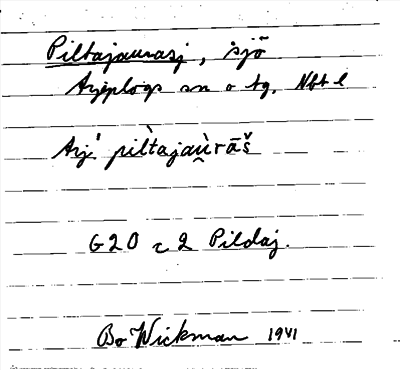 Piltajaurasj, sjö
Arjeplogs sn o tg. Nbt l
Arj. pilt̀ajaù̯rāš
G20 c2 Pildaj.
Bo Wickman 1941